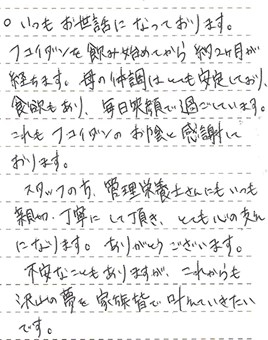 ○ いつもお世話になっております。
フコイダンを飲み始めてから 約2ヶ月が
経ちます。母の体調はとても安定しており、
食欲もあり、毎日笑顔で過ごしています。
これもフコイダンのお陰と感謝して
おります。
スタッフの方、管理栄養士さんにもいつも
親切、丁寧にして頂き、とても心の支え
になります。ありがとうございます。
不安なこともありますが、これからも
沢山の夢を家族皆で叶えていきたい
です。